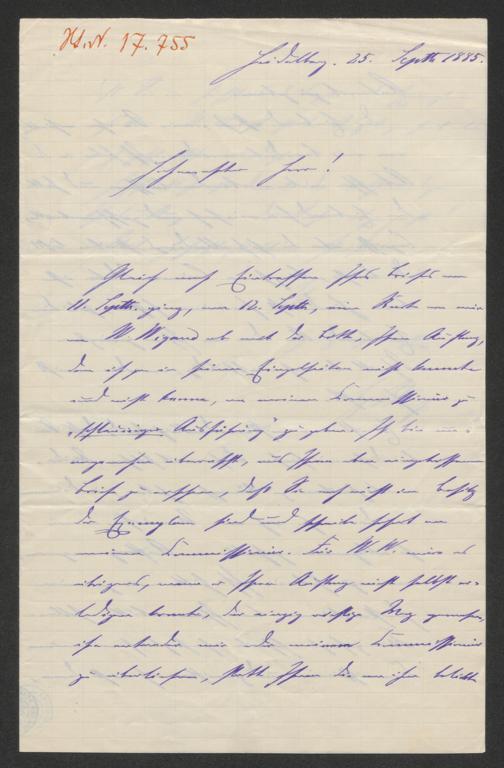 H.I.N. 17.755
Heidelberg. 25. Septb. 1885.
Hochgeehrter Herr!
Gleich nach Eintreffen Ihres Briefes vom
11. Septb. ging, am 12. Septb., eine Karte von mir
an W. Wigand ab mit der Bitte, Ihren Auftrag,
den ich ja in seinen Einzelheiten nicht kannte
und nicht kenne, an meinen Commissionär zu
"schleuniger Ausführung" zu geben. Ich bin un-
angenehm überrascht, aus Ihrem eben eingetroffenen
Brief zu ersehen, daß Sie noch nicht im Besitz
der Exemplare sind und schreibe sofort an
meinen Commissionär. Für W. W. wäre es
übrigens, wenn er Ihren Auftrag nicht selbst er-
ledigen konnte, der einzig richtige Weg gewesen,
ihn entweder mir oder meinem Commissionär
zu überliefern, statt Ihnen die von ihm beliebte